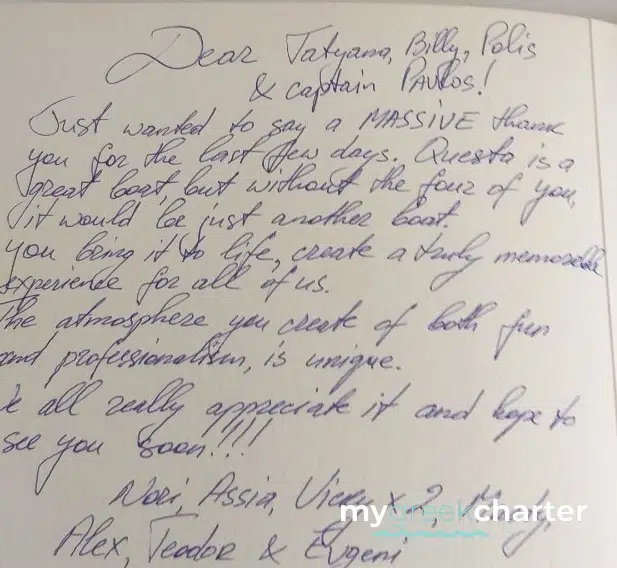 Dear Tatyana, Billy, Polis
& captain PAVLOS!
Just wanted to say a MASSIVE thank
you for the last few days. Questa is a
great boat, but without the four of you,
it would be just another boat.
you bring it to life, create a truly memorable
experience for all of us.
The atmosphere you create of both fun
and professionalism, is unique.
all really appreciate it and hope to
see you soon!!!!
Nori, Assia, Vicky x 2,
mygreekcharter
Alex, Teodor & Evgeni